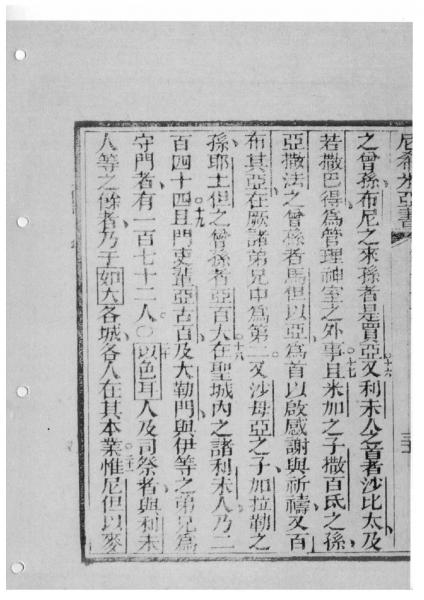 尼希米亞書
之曾孫布尼之來孫者是賈亞十六又利未人之首者沙比太及
若撒巴得為管理神室之外事十七且米加之子撒百氐之孫
亞撒法之曾孫者馬但以亞為首以啟感謝與祈禱又百
布其亞在厥諸弟兄中為第二又沙母亞之子加拉勒之
孫耶土但之曾孫者亞百大十八在聖城內之諸利未人乃二
百四十四十九且門吏輩亞古百及大勒門與伊等之弟兄為
守門者有一百七十二人○二十以色耳人及司祭者與利未
人等之餘者乃于如大各城各人在其本業二十一惟尼但以麥